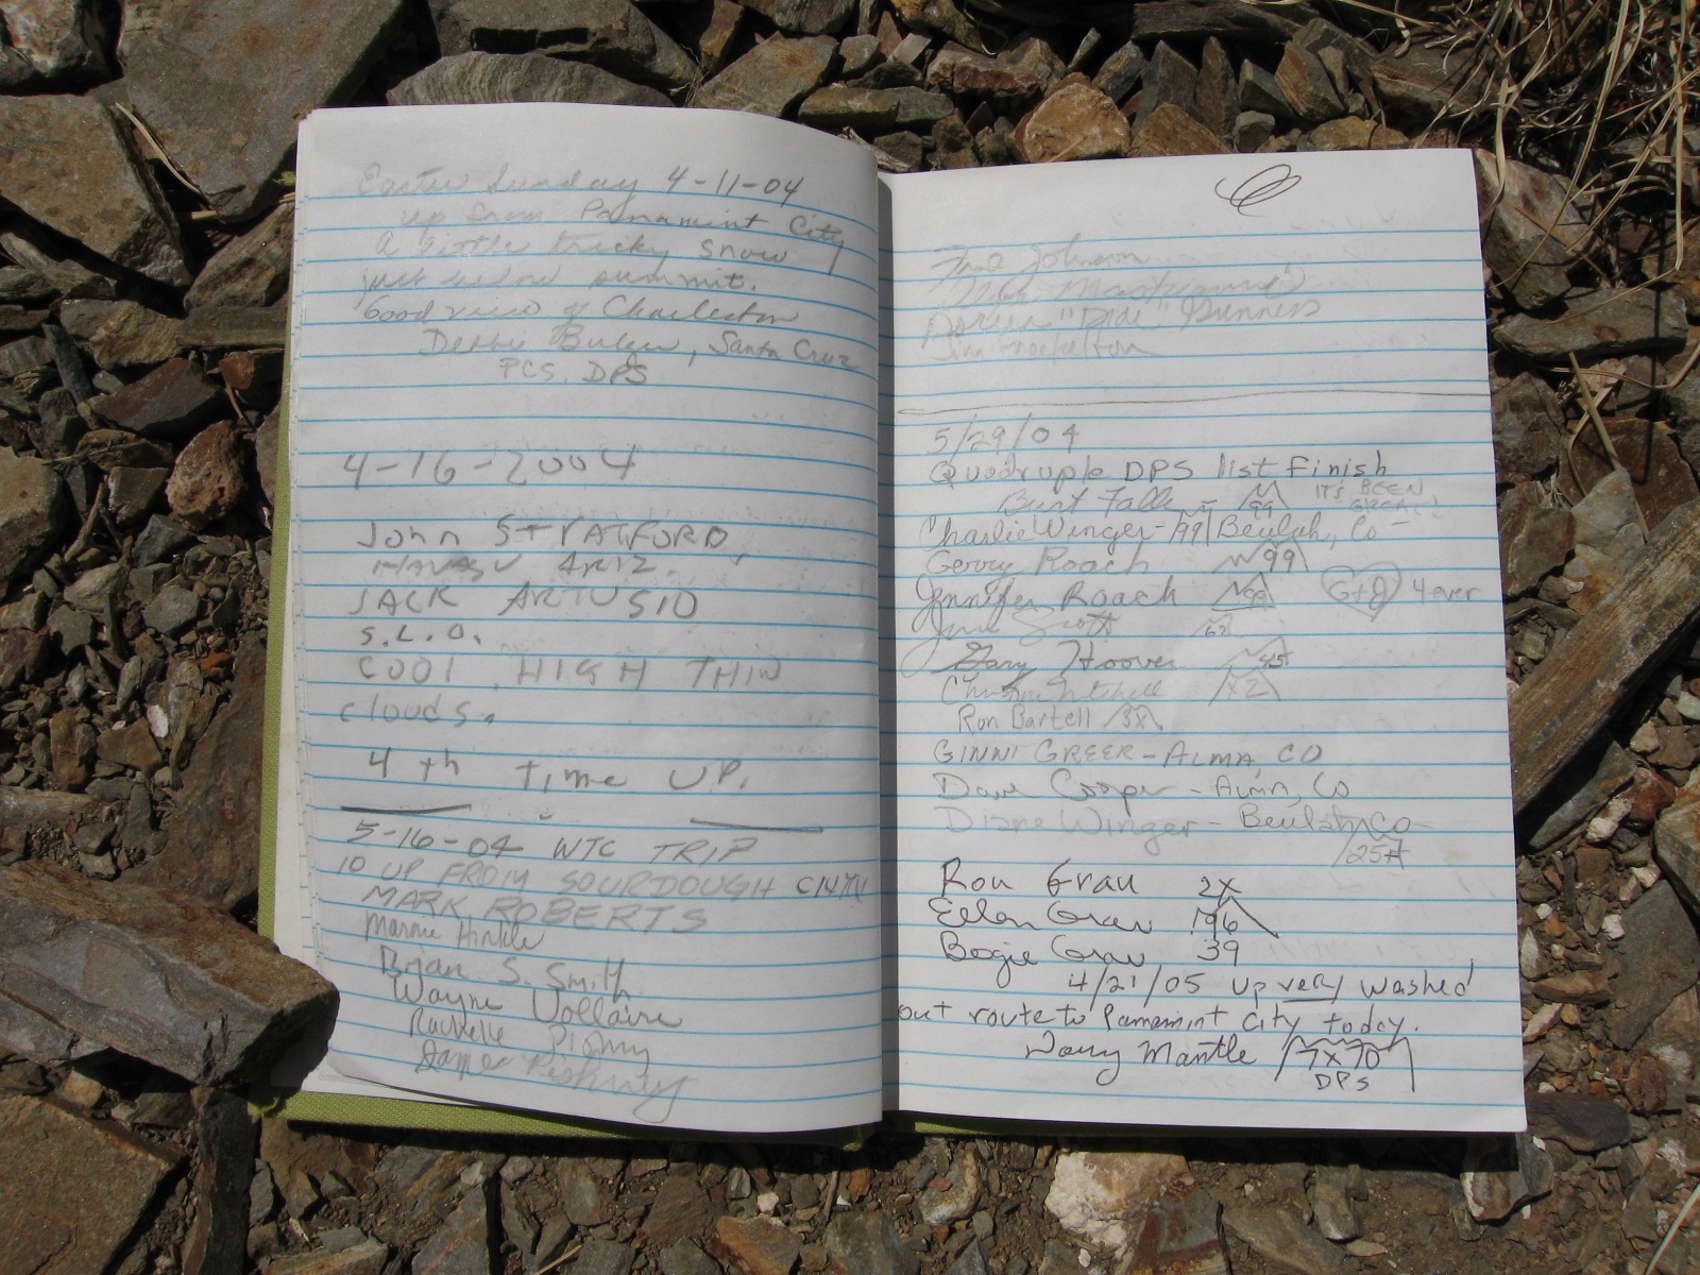 Easter Sunday 4-11-04
up from Panamint City
a little tricky snow
just below summit.
Good view of Charleston
Debbie Bulger, Santa Cruz
PCS, DPS
4-16-2004
John STRATFORD,
HAVASU ARIZ.
JACK ARTUSIO
S.L.O.
COOL, HIGH THIN
clouds.
4th time UP.
5-16-04 WTC TRIP
10 UP FROM SOURDOUGH CNYN
MARK ROBERTS
Marnie Hinkle
Brian S. Smith
Wayne Vollaire
Rachelle
Johnson
5/29/04
Quadruple DPS list Finish
Burt Falk 99 IT'S BEEN GREAT!
Charlie Winger - 99 Beulah, Co
Gerry Roach 99
Jennifer Roach 99 G+J 4ever
Gary Hoover
Christine Mitchell x2
Ron Bartell 3x
GINNI GREER - ALMA, CO
Dave Cooper - Alma, Co
Diane Winger - Beulah, Co
Ron Grau 2X
Ellen Grau 96
Bogie Grau 39
4/21/05 up very washed
out route to Panamint City today.
Doug Mantle 7x70
DPS